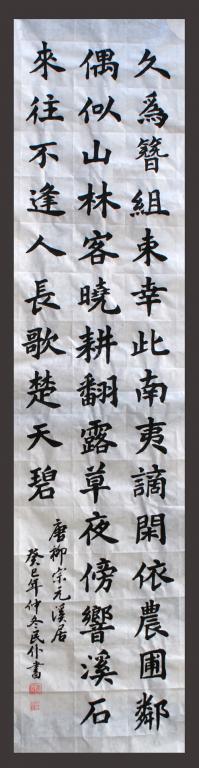 久為簪組束幸此南夷謫閑依農圃鄰
偶似山林客曉耕翻露草夜傍響溪石
來往不逢人長歌楚天碧
唐柳宗元溪居
癸巳年仲冬民仆書